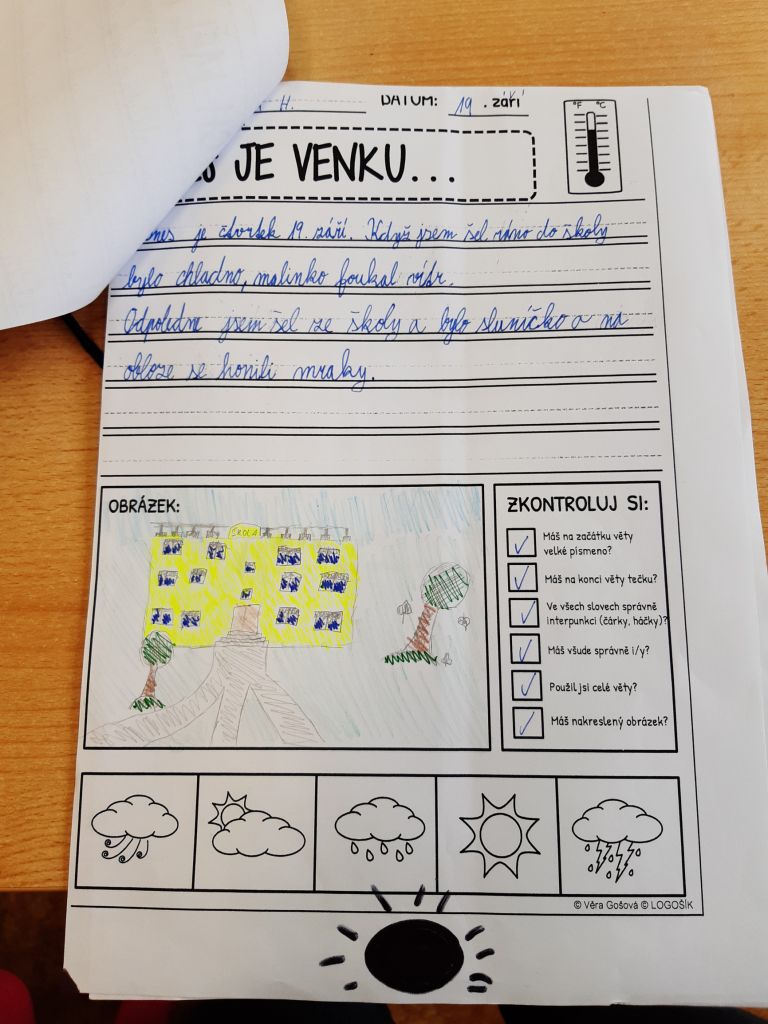 H. DATUM: 19. září
°F °C
JE VENKU...
je čtvrtek 19. září. Když jsem šel ráno do školy
bylo chladno, malinko foukal vítr.
Odpoledne jsem šel ze školy a bylo sluníčko a na
obloze se honili mraky.
OBRÁZEK:
ŠKOLA
ZKONTROLUJ SI:
Máš na začátku věty
velké písmeno?
Máš na konci věty tečku?
Ve všech slovech správně
interpunkci (čárky, háčky)?
Máš všude správně i/y?
Použil jsi celé věty?
Máš nakreslený obrázek?
© Věra Gošová © LOGOŠÍK